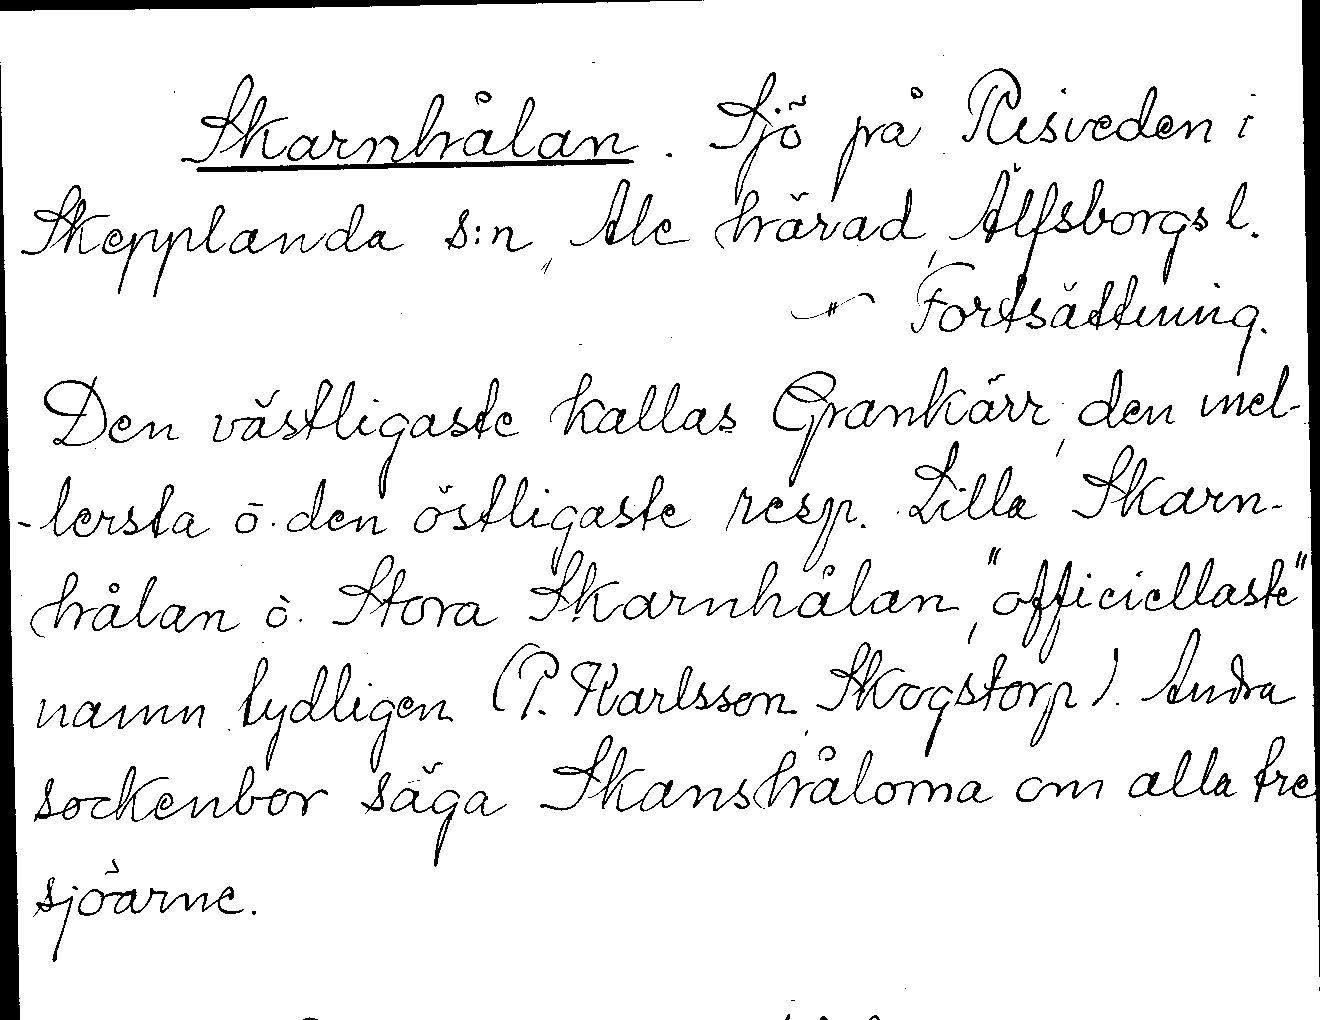 Skarnhålan. Sjö på Risveden i
Skepplanda s:n, Ale härad, Älfsborgs l.
Fortsättning.
Den västligaste kallas Grankärr, den mel-
-lersta ö. den östligaste resp. Lilla Skarn-
hålan ö. Stora Skarnhålan, "officiellaste"
namn tydligen (P. Karlsson Skogstorp). Andra
sockenbor säga Skanshåloma om alla tre
sjöarne.